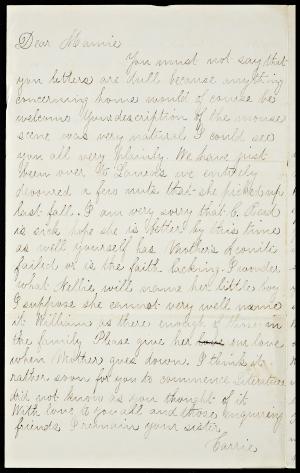 Dear Mamie
You must not say that
you letters are dull because anything
concerning home would of course be
welcome. Your description of the mouse
scene was very natural I could see
you all very plainly. We have just
been over to we entirely
devoured a few nuts that she picked up
last fall. I am very sorry that C. Read
is sick hope she is better by this time
as well yourself has Mother's Aconite
failed or is the faith lacking. I wonder
what Nellie will name her little boy
I suppose she cannot very well name
it William as there enough of those in
the family. Please give her love our love
when Mother goes down. I think it
rather soon for you to commence Literature
did not know as you thought of it
With love to you all and those enquiring
friends I remain your sister
Carrie